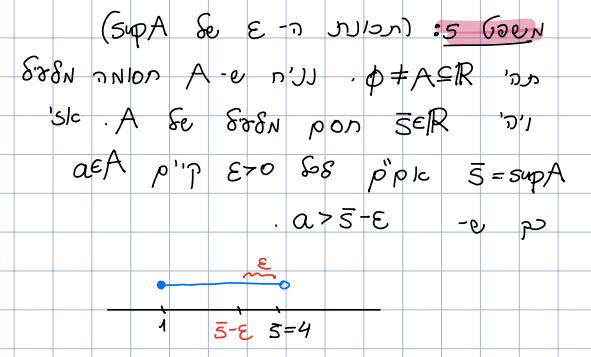 משפט 5: (תכונת ה- ε של supA)
תהי ∅≠A⊆ℝ. נניח ש- A חסומה מלעיל
ויהי s̄∈ℝ חסם מלעיל של A. אזי
s̄=supA אם"ם לכל ε>0 קיים a∈A
כך ש- a>s̄-ε.
ε
1 s̄-ε s̄=4